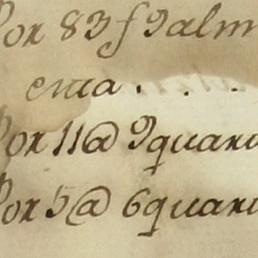 Por 83 f 9 alm
enca . . .
Por 11@ 9 quar
Por 5@ 6 quar